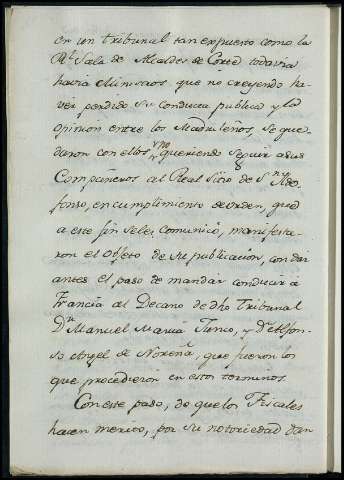 en un tribunal tan expuesto como la
Rl. Sala de Alcaldes de Corte todavia
havia Ministros que no creyendo ha-
ver perdido su conducta publica y la
opinion entre los Madrileños, se que-
daron con ellos, y no queriendo seguir a sus
Compañeros al Real Sitio de Sn. Yldefonso
fonso, en cumplimiento de orden, que
a este fin se les comunicó, manifesta-
ron el Objeto de su publicacion, con dar
antes el paso de mandar conducir á
Francia al Decano de dho Tribunal
Dn. Manuel Maria Junco, y Dn. Alfon-
so Angel de Noreña, que fueron los
que procedieron en estos terminos.
Con este paso, de que los Fiscales
hacen merito, por su notoriedad dan